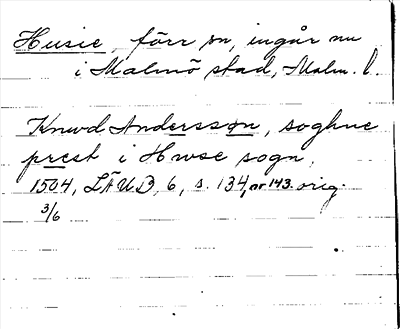 Husie, förr sn, ingår nu
i Malmö stad, Malm. l.
Knwd Andersson, soghne
prest i Hwse sogn,
1504, LÄUB, 6, s. 134, nr 143. orig.
3/6